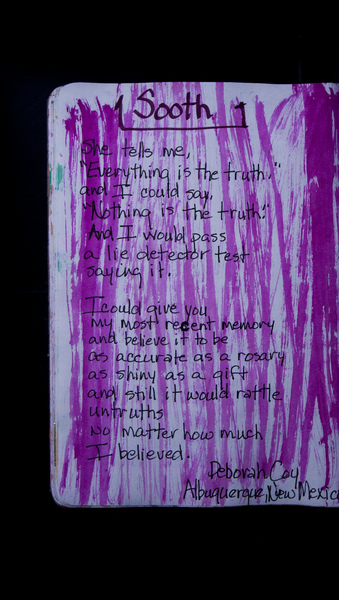 Sooth
She tells me,
"Everything is the truth."
and I could say,
"Nothing is the truth."
And I would pass
a lie detector test
saying it.
I could give you
my most recent memory
and believe it to be
as accurate as a rosary
as shiny as a gift
and still it would rattle
untruths
No matter how much
I believed.
Deborah Coy
Albuquerque, New Mexico